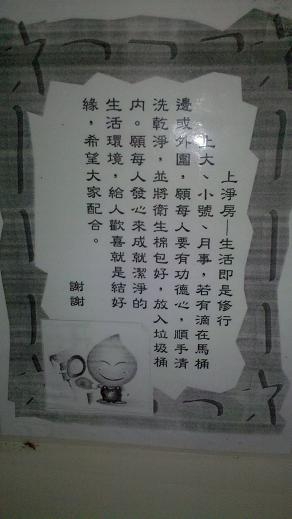 上淨房—生活即是修行
上大、小號、月事,若有滴在馬桶
邊或外圍,願每人要有功德心,順手清
洗乾淨,並將衛生棉包好,放入垃圾桶
內。願每人發心來成就潔淨的
生活環境,給人歡喜就是結好
緣,希望大家配合。
謝謝